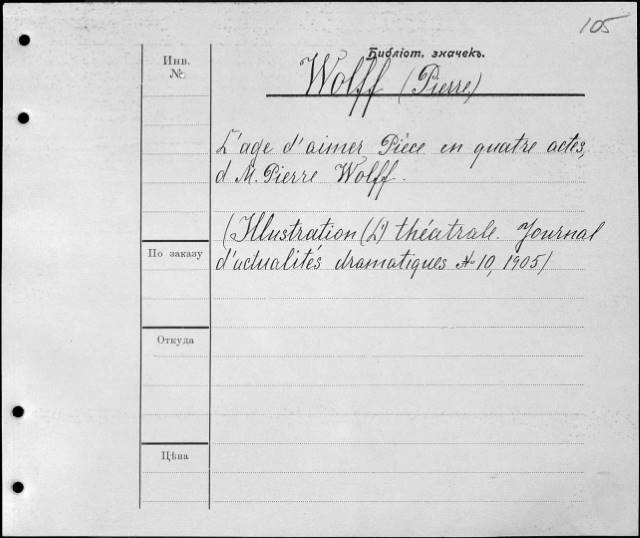 105
Библіот. значекъ.
Инв. №
Wolff (Pierre)
L'age d'aimer Pièce en quatre actes,
d M. Pierre Wolff.
(Illustration (L') théatrale. Journal
d'actualités dramatiques № 10, 1905)
По заказу
Откуда
Цѣна